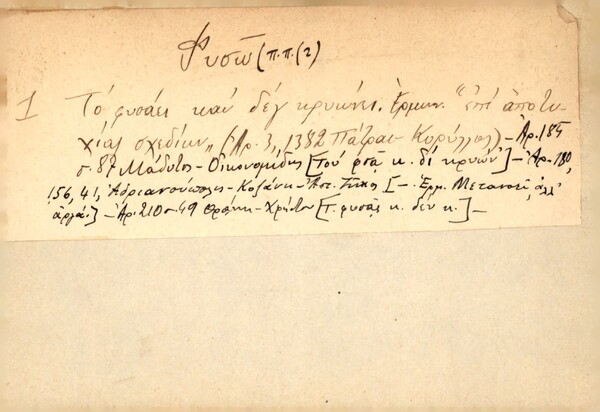 Φυσῶ (π.π. (2)
1 Τό φυσάει καί δέν κρυώνει. Ἑρμην. "ἐπί ἀποτυ-
χίας σχεδίων„ (Ἀρ. 3,, 1382 Πάτραι - Κορύλλος) - Ἀρ. 185
σ. 87 Μάδυτος - Οἰκονομίδης [Τοὐ φσᾷ κ. δί κρυών'] - Ἀρ. 180,
156, 41, Ἀδριανούπολις - Κοζάνη - [ - Ἑρμ. Μετανοεῖ, ἀλλ'
ἀργά.] - Ἀρ. 210 σ. 49 Θράκη - Χρήστου [Τ. φυσάς κ. δέν κ.] -